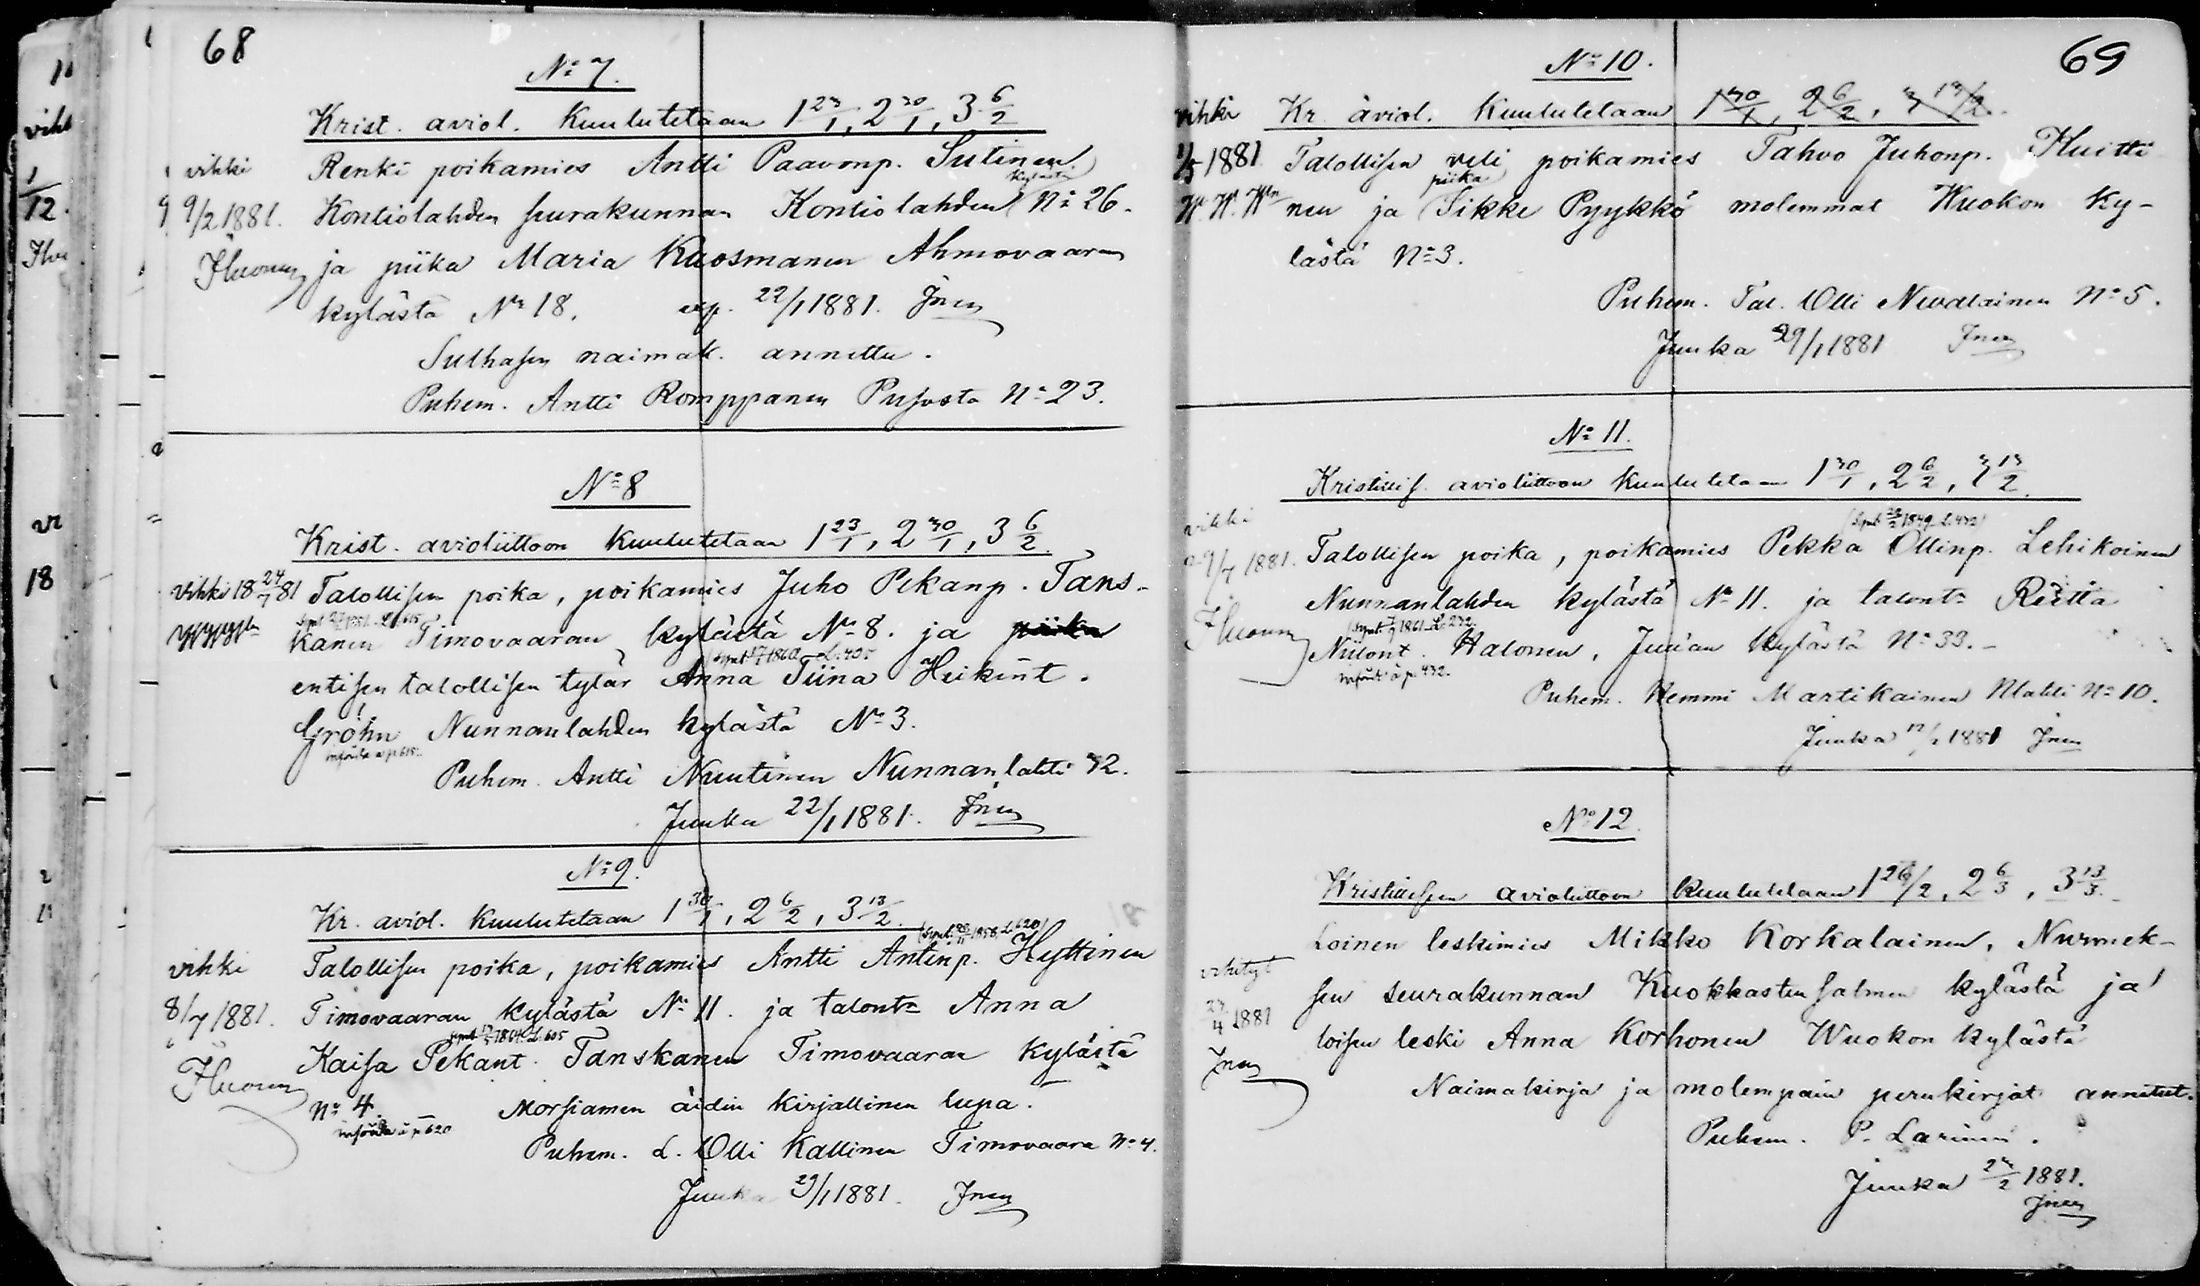 68
No 7.
Krist. aviol. Kuulutetaan 1 23/1, 2 30/1, 3 6/2
vihki Renki poikamies Antti Paavonp. Sutinen
9/2 1881. Kontiolahden seurakunnan Kontiolahden kylästä No 26.
ja piika Maria Kuosmanen Ahmovaaran
kylästä No 18. up. 22/1 1881. Jnen
Sulhasen naimak. annettu.
Puhem. Antti Romppanen Pusosta No 23.
No 8
Krist. avioliittoon Kuulutetaan 1 23/1, 2 30/1, 3 6/2.
vihki 18 24/7 81 Talollisen poika, poikamies Juho Pekanp. Tans-
kanen Timovaaran kylästä No 8. ja piika
entisen talollisen tytär Anna Tiina Heikint.
Gröhn Nunnanlahden kylästä No 3.
Puhem. Antti Nuutinen Nunnanlahti 32.
Juuka 22/1 1881. Jnen
No 9.
Kr. aviol. Kuulutetaan 1 30/1, 2 6/2, 3 13/2.
vihki Talollisen poika, poikamies Antti Antinp. Hyttinen
8/7 1881. Timovaaran kylästä No 11. ja talont. Anna
Kaisa Pekant. Tanskanen Timovaaran kylästä
No 4. Morsiamen äidin kirjallinen lupa.
införda å p 620
Puhem. L. Olli Kallinen Timovaara No 4.
Juuka 29/1 1881. Jnen
69
No 10.
vihki Kr. aviol. Kuulutetaan 1 30/1, 2 6/2, 3 13/2.
1/5 1881 Talollisen veli poikamies Tahvo Juhonp. Huitti
nen ja piika Sikke Pyykkö molemmat Wuokon ky-
lästä No 3.
Puhem. Tal. Olli Nevalainen No 5.
Juuka 29/1 1881 Jnen
No 11.
Kristillis. avioliittoon kuulutetaan 1 30/1, 2 6/2, 3 13/2.
vihki
1881. Talollisen poika, poikamies Pekka Ollinp. Lehikoinen
Nunnanlahden kylästä No 11. ja talont. Reitta
Niilont. Halonen, Juuan kylästä No 33.
införda å p. 432.
Puhem. Hemmi Martikainen Mlahti No 10.
Juuka 1881 Jnen
No 12.
Kristillisen avioliittoon kuulutetaan 1 26/2, 2 6/3, 3 13/3.
Loinen leskimies Mikko Korkalainen, Nurmek-
vihityt sen seurakunnan Kuokkastensalmen kylästä ja
27/4 1881 loisen leski Anna Korhonen Wuokon kylästä
Jnen
Naimakirja ja molempain perukirjat annetut.
Puhem. P. Larinen.
Juuka 1881.
Jnen